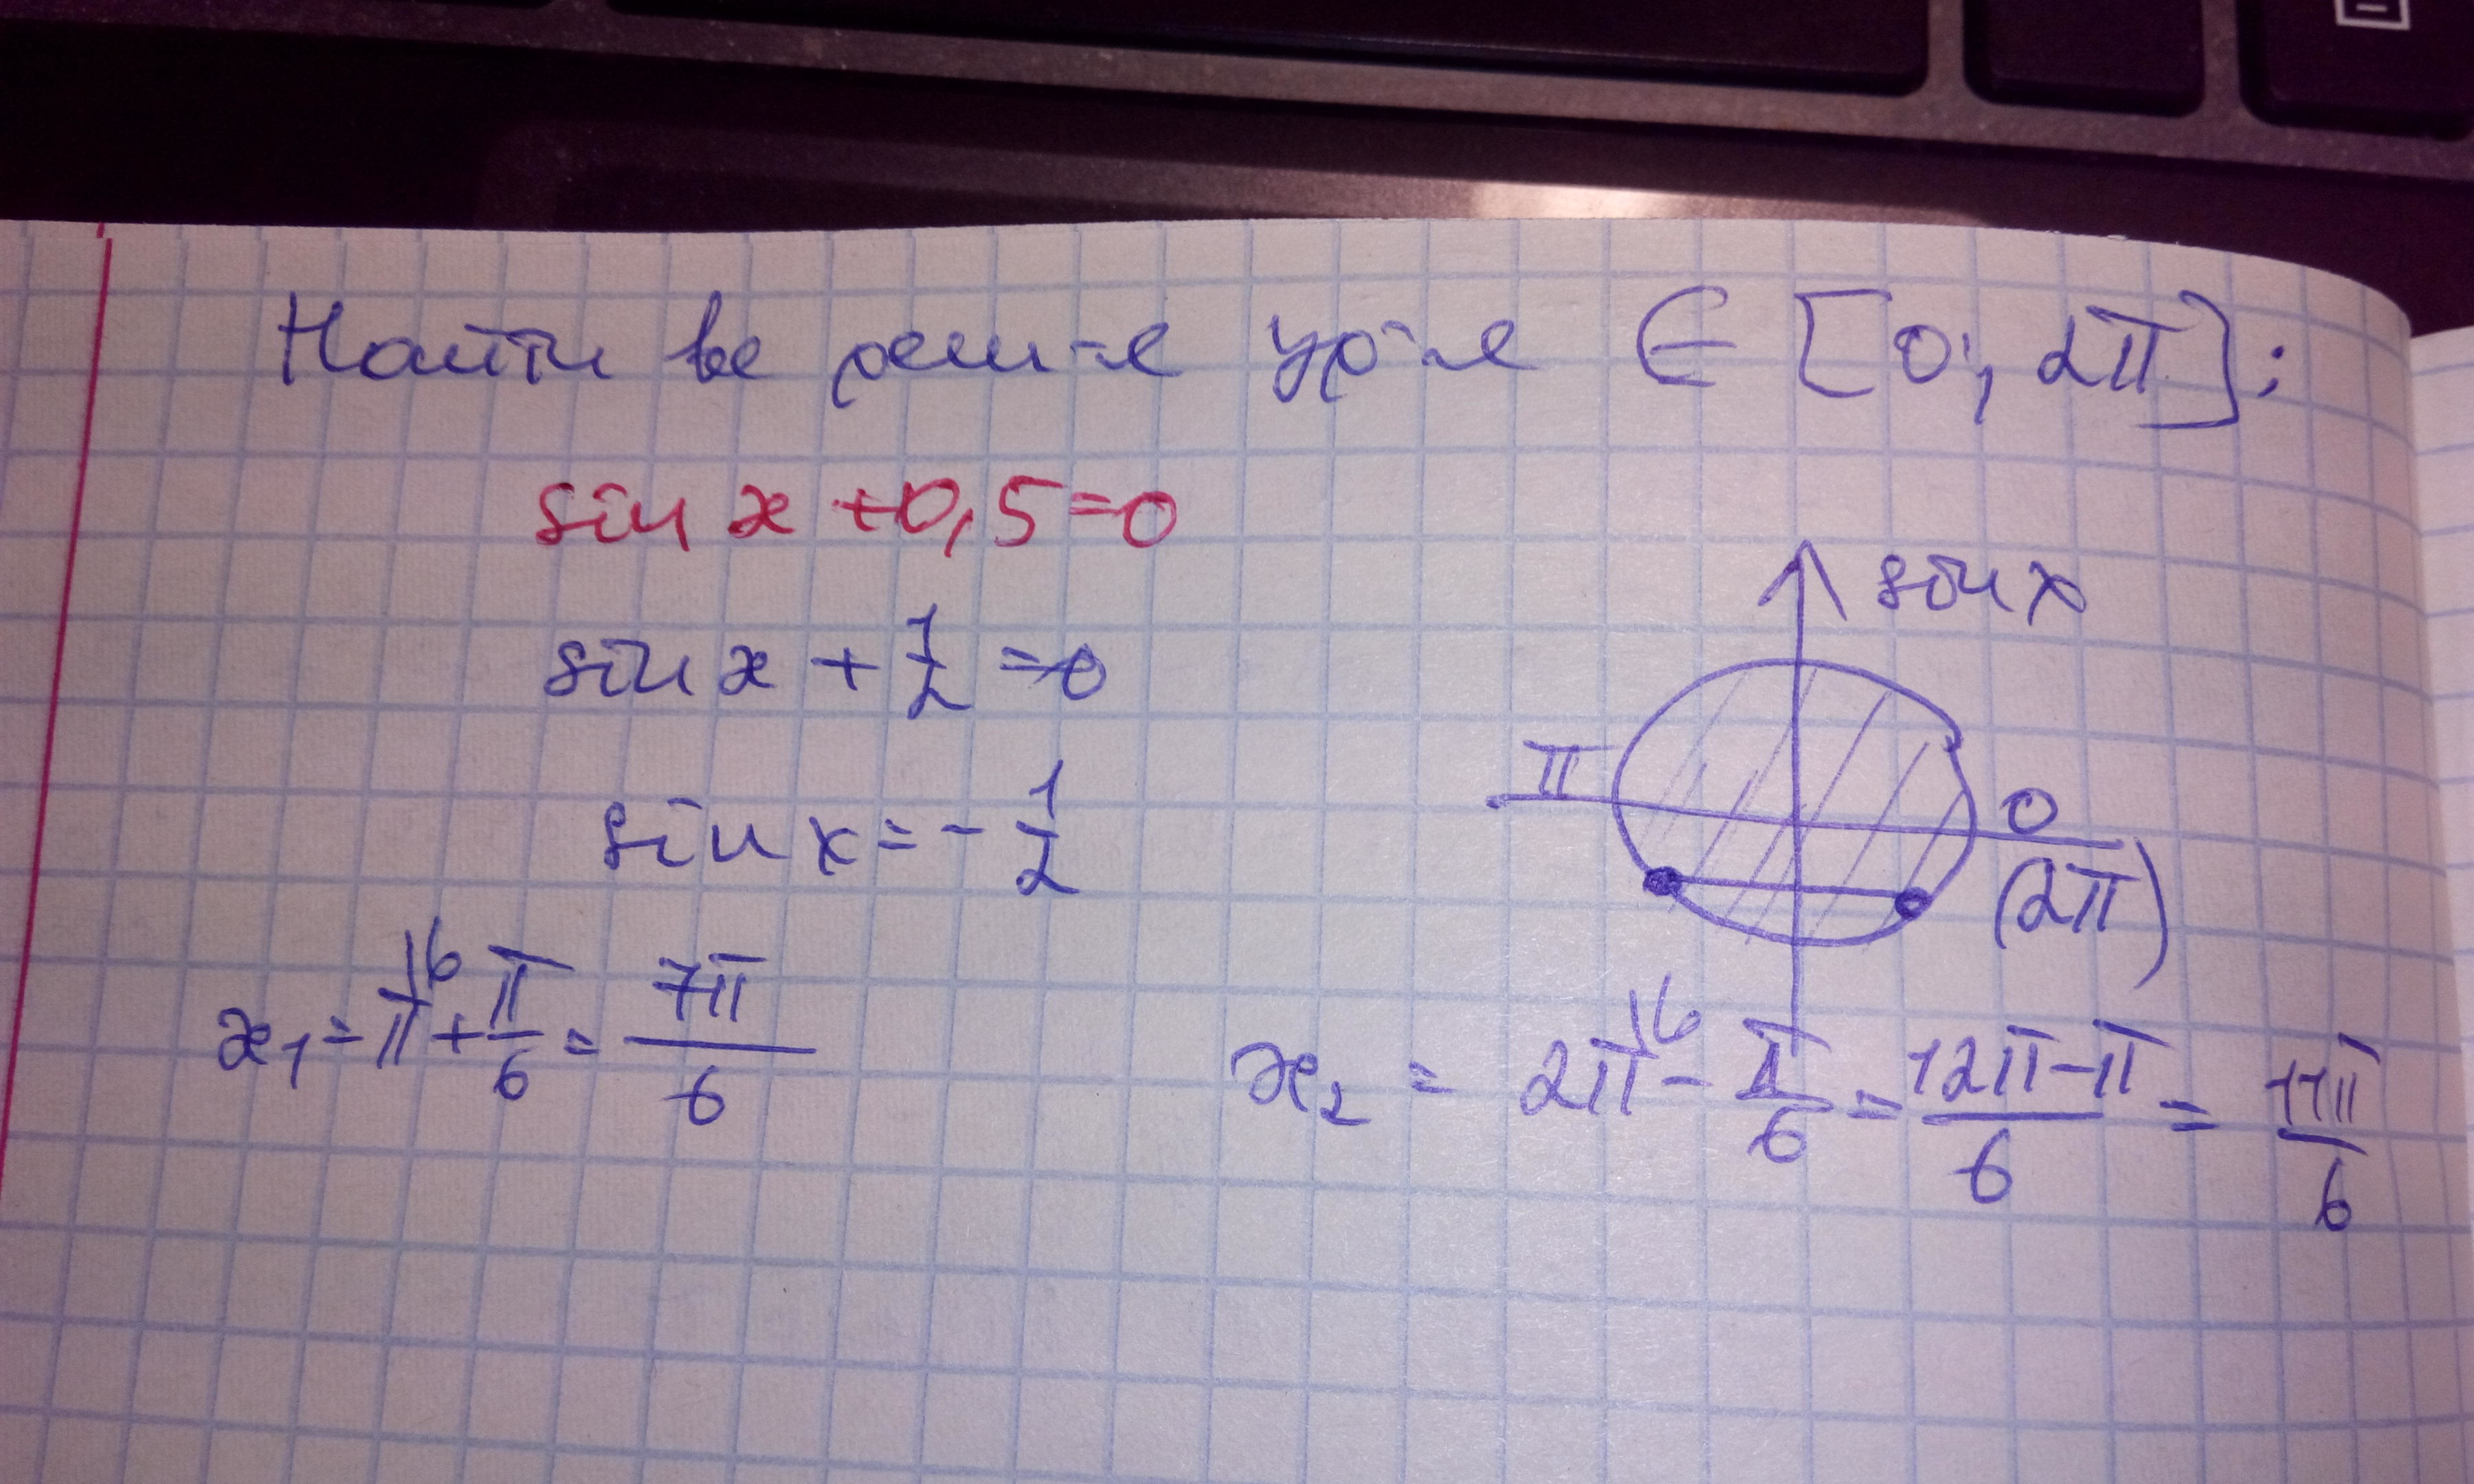 Найти все реш-е ур-е ∈ [0; 2π]:
sin x +0,5=0
sin x + 1/2 =0
sin x = - 1/2
sin x
π
0
(2π)
x₁ = π\6 + π/6 = 7π/6
x₂ = 2π\6 - π/6 = 12π-π/6 = 11π/6